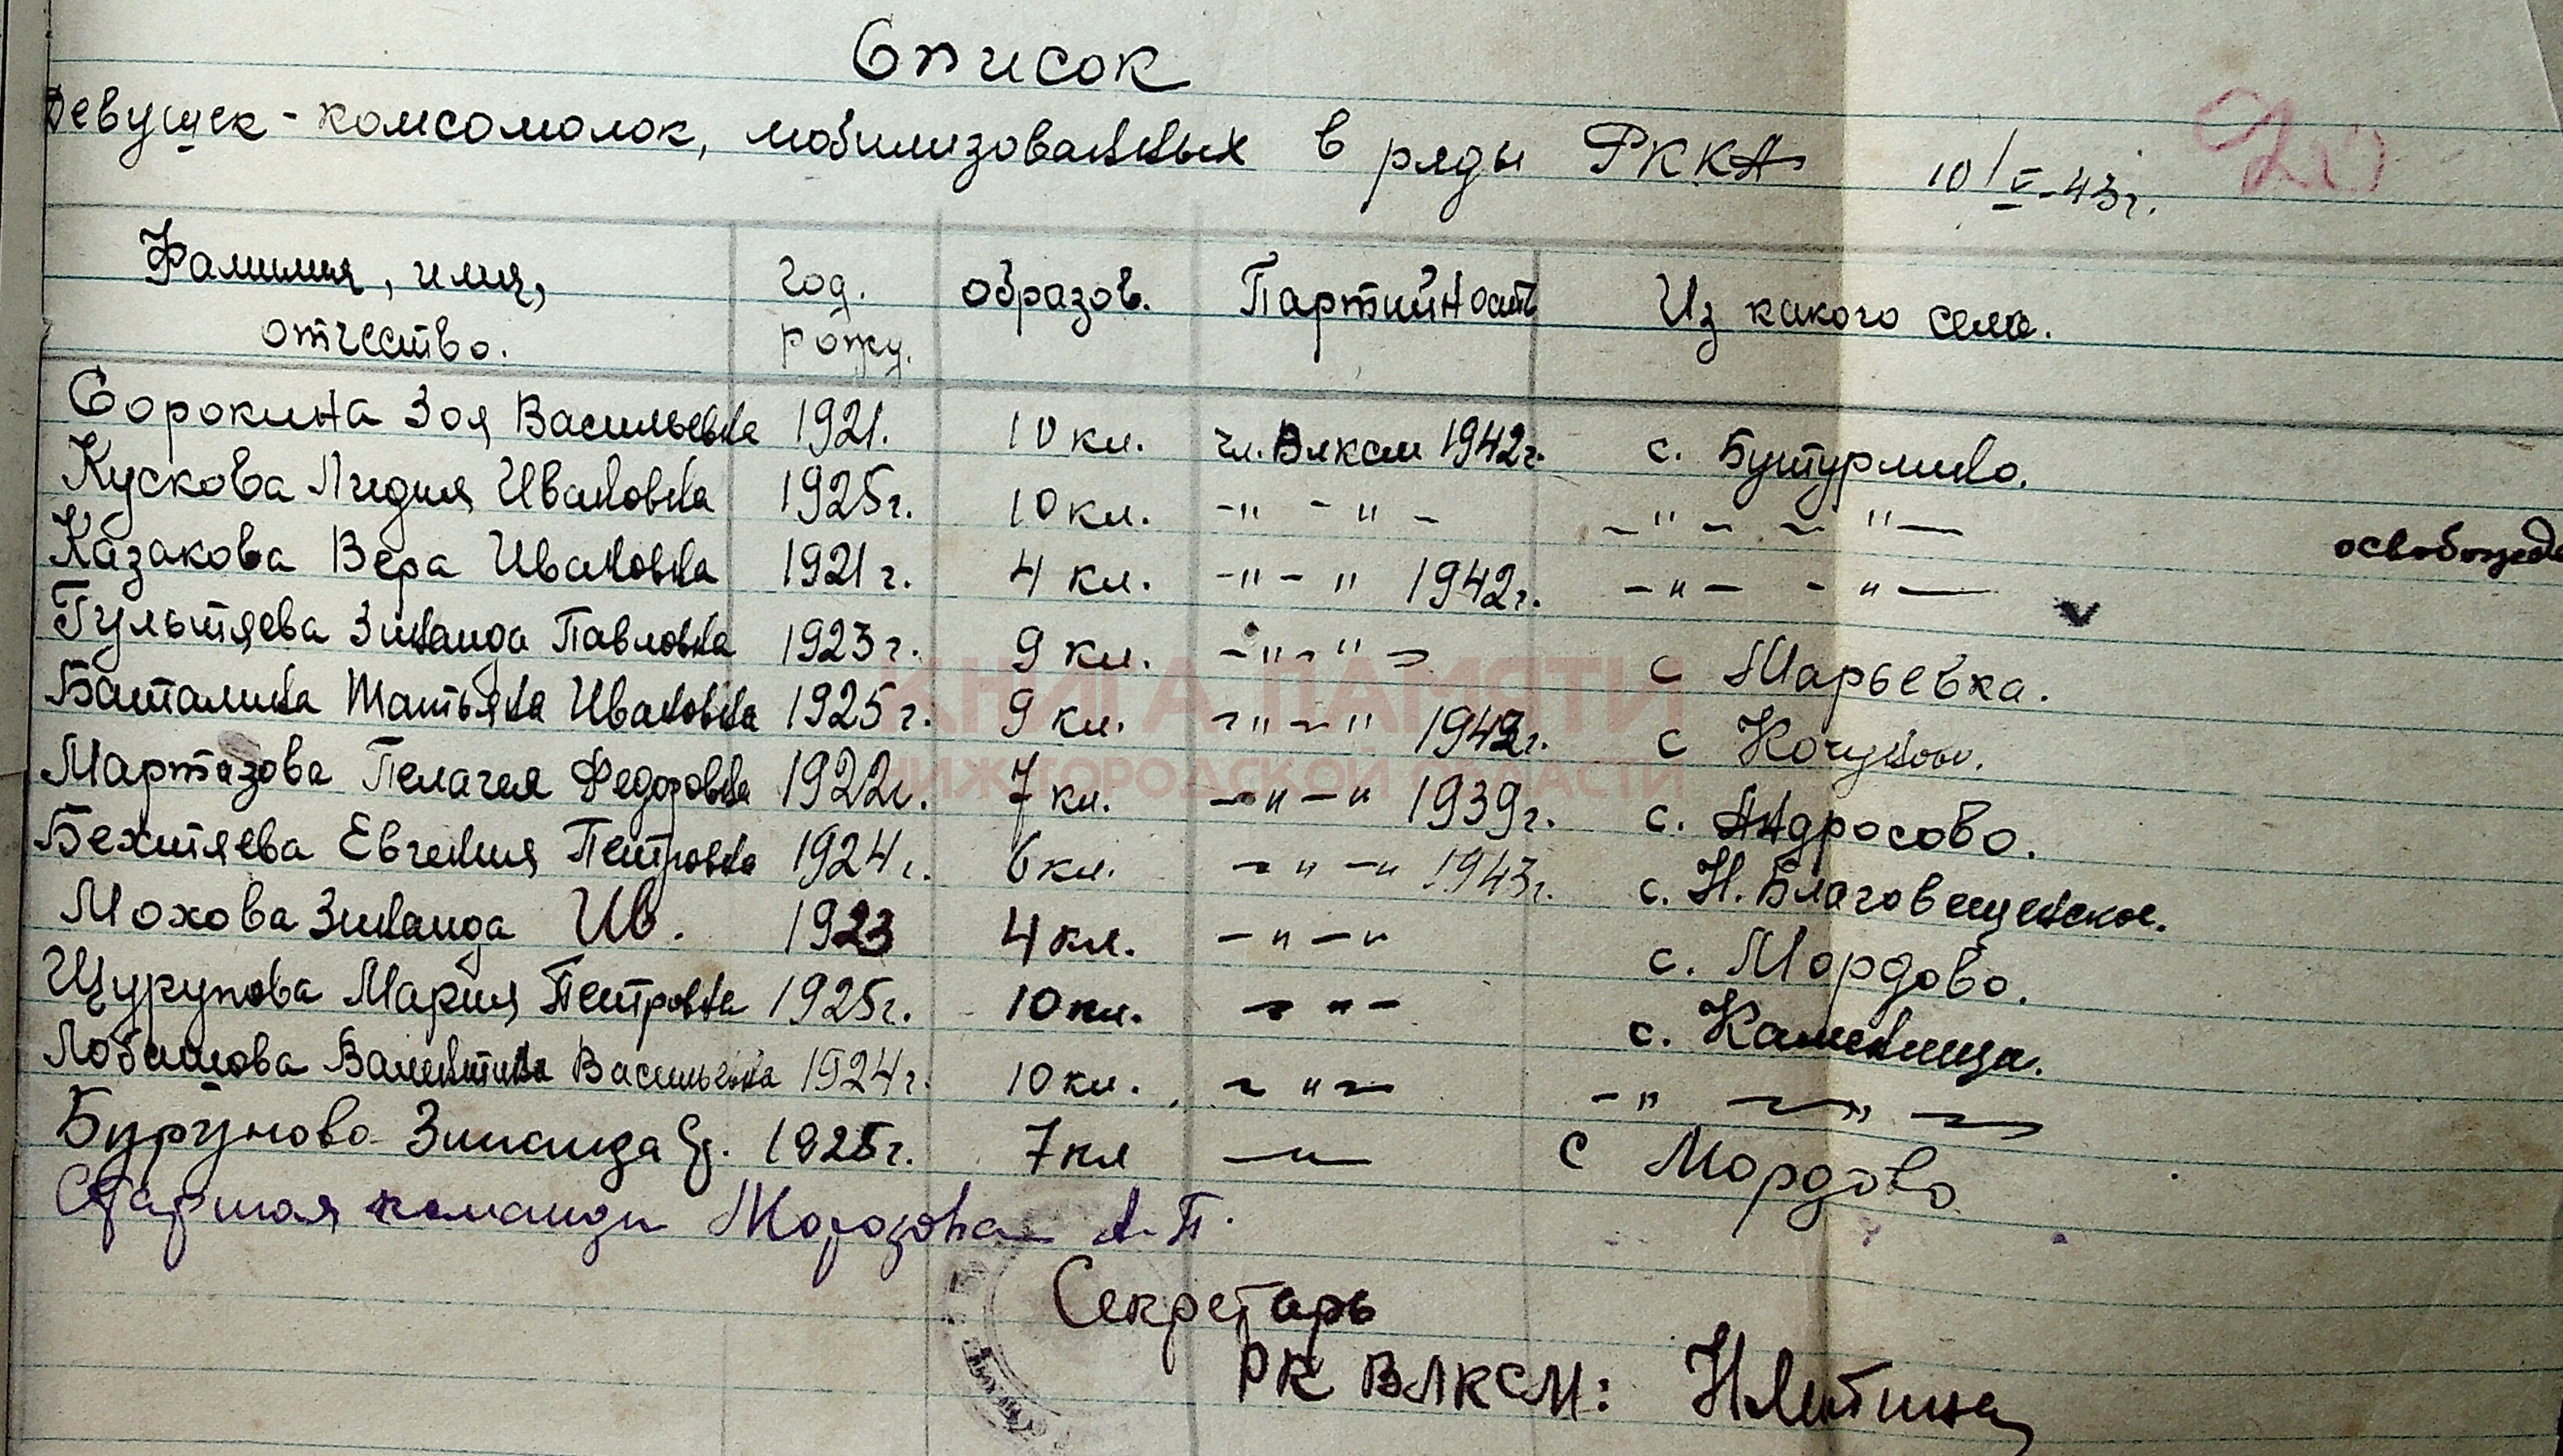 Список
девушек-комсомолок, мобилизованных в ряды РККА 10/V-43г.
20
Фамилия, имя, отчество. год. рожд. образов. Партийность Из какого села.
Сорокина Зоя Васильевна 1921. 10 кл. чл. Влксм 1942г. с. Бутурлино.
Кускова Лидия Ивановна 1925г. 10 кл. -"- "- -"- -"-
Казакова Вера Ивановна 1921г. 4 кл. -"-" 1942г. -"- -"- освобожде
Гультяева Зинаида Павловна 1923г. 9 кл. -"-"- с Марьевка.
Баталина Татьяна Ивановна 1925г. 9 кл. -"-" 1942г. с Кочуново.
Мартазова Пелагея Федоровна 1922г. 7 кл. -"-" 1939г. с. Андросово.
Бехтяева Евгения Петровна 1924г. 6 кл. -"-" 1943г. с. Н. Благовещенское.
Мохова Зинаида Ив. 1923 4 кл. -"-" с. Мордово.
Щурупова Мария Петровна 1925г. 10 кл. -"- с. Каменища.
Лобашова Валентина Васильевна 1924г. 10 кл. -"- -" -"-
Бурунова Зинаида 1925г. 7 кл -"- с Мордово
Старшая команды Морозова А. П.
Секретарь
РК ВЛКСМ:
КНИГА ПАМЯТИ
НИЖЕГОРОДСКОЙ ОБЛАСТИ